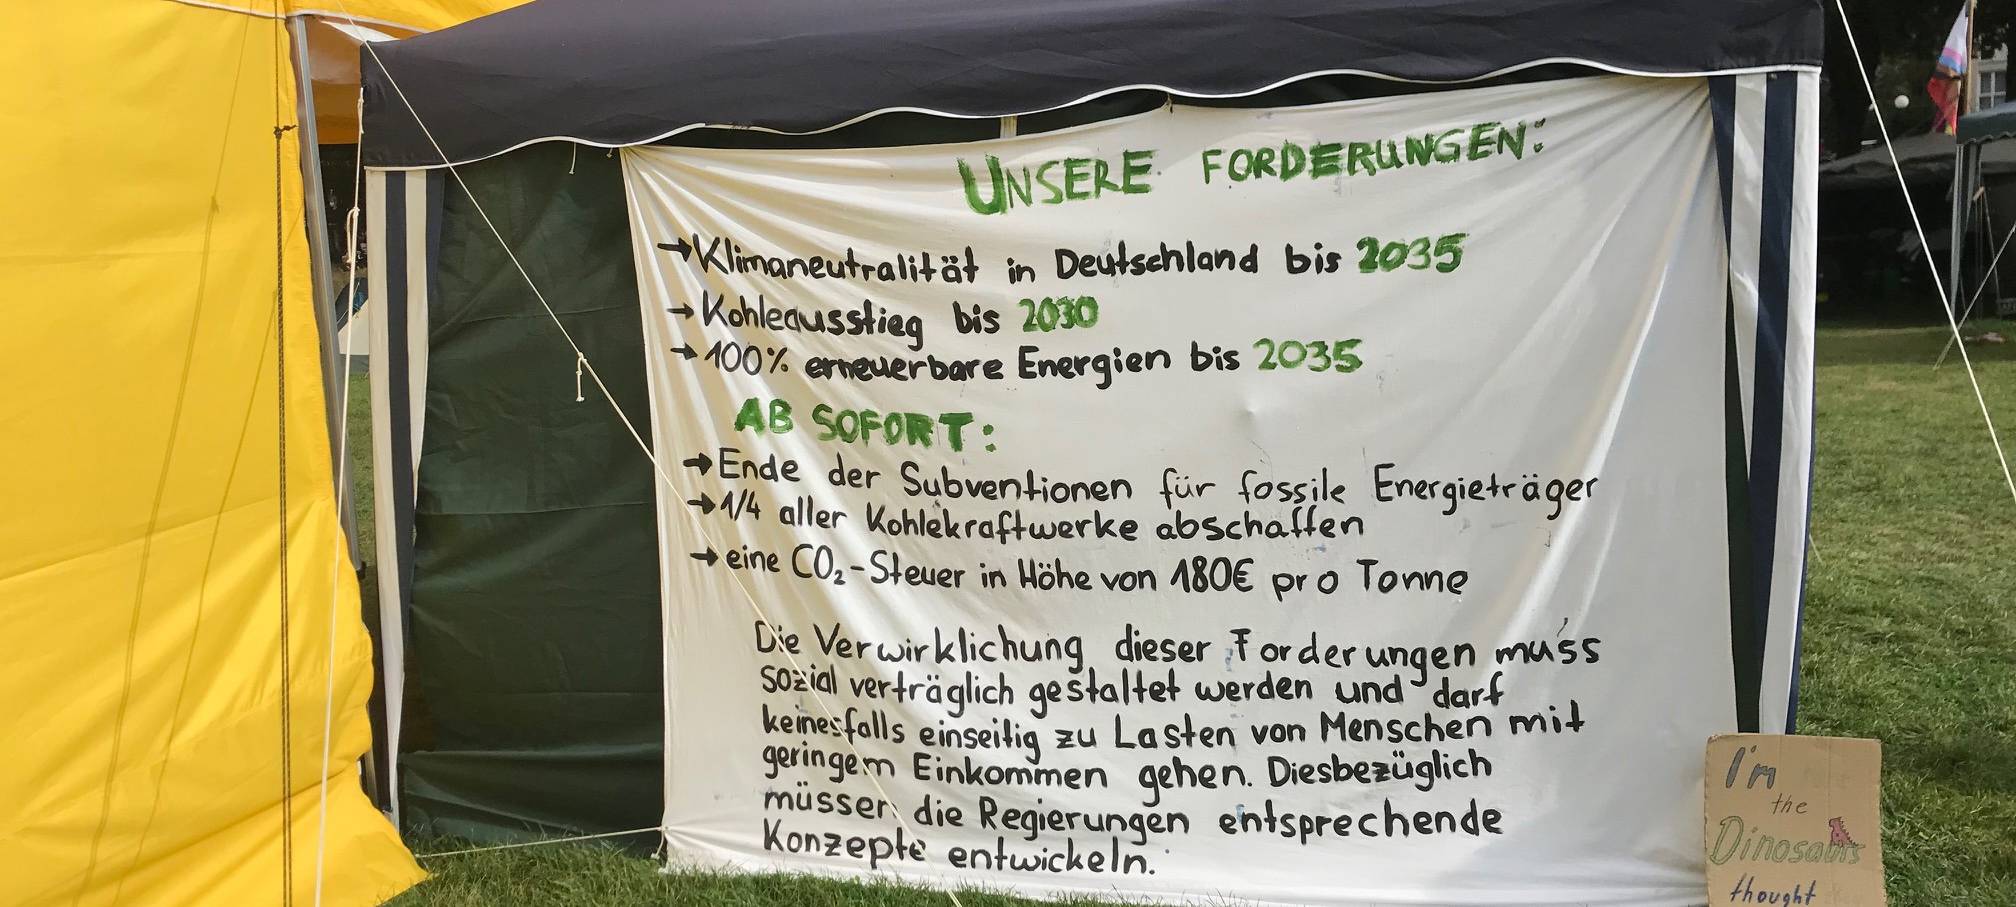 UNSERE FORDERUNGEN:
→Klimaneutralität in Deutschland bis 2035
→Kohleausstieg bis 2030
→100% erneuerbare Energien bis 2035
AB SOFORT:
→Ende der Subventionen für fossile Energieträger
→1/4 aller Kohlekraftwerke abschaffen
→eine CO₂-Steuer in Höhe von 180€ pro Tonne
Die Verwirklichung dieser Forderungen muss
sozial verträglich gestaltet werden und darf
keinesfalls einseitig zu Lasten von Menschen mit
geringem Einkommen gehen. Diesbezüglich
müssen die Regierungen entsprechende
Konzepte entwickeln.
I'm
the
Dinosaurs
thought